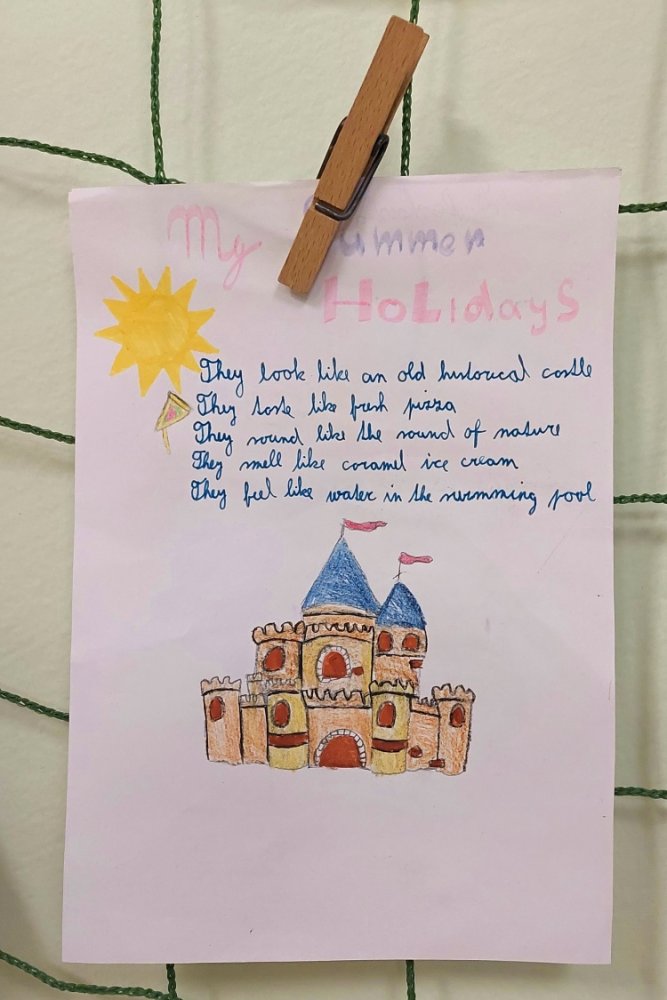 My Summer
HoLidayS
They look like an old historical castle
They taste like fresh pizza
They sound like the sound of nature
They smell like caramel ice cream
They feel like water in the swimming pool